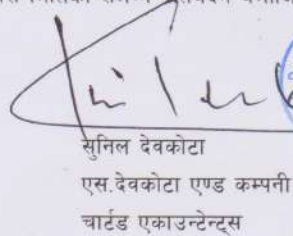 सुनिल देवकोटा
एस.देवकोटा एण्ड कम्पनी
चार्टड एकाउन्टेन्ट्स